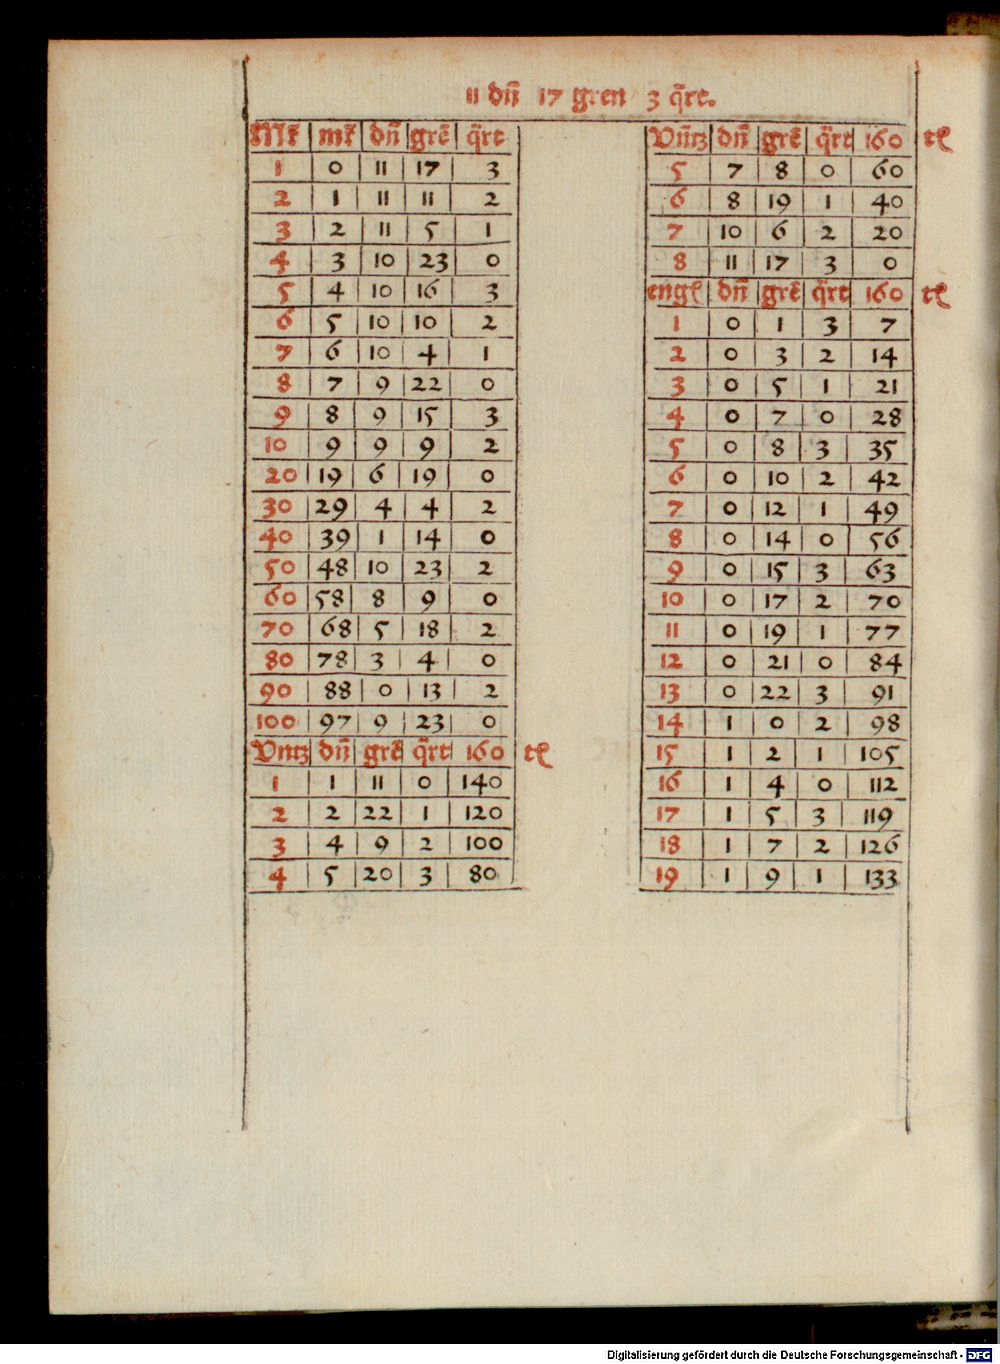 11 dn̄ 17 gren 3 q̄rt.
Mr̄ mr̄ dn̄ grē q̄rt
1 0 11 17 3
2 1 11 11 2
3 2 11 5 1
4 3 10 23 0
5 4 10 16 3
6 5 10 10 2
7 6 10 4 1
8 7 9 22 0
9 8 9 15 3
10 9 9 9 2
20 19 6 19 0
30 29 4 4 2
40 39 1 14 0
50 48 10 23 2
60 58 8 9 0
70 68 5 18 2
80 78 3 4 0
90 88 0 13 2
100 97 9 23 0
Vntz dn̄ grē q̄rt 160 tꝭ
1 1 11 0 140
2 2 22 1 120
3 4 9 2 100
4 5 20 3 80
Vn̄tz dn̄ grē q̄rt 160 tꝭ
5 7 8 0 60
6 8 19 1 40
7 10 6 2 20
8 11 17 3 0
engꝭ dn̄ grē q̄rt 160 tꝭ
1 0 1 3 7
2 0 3 2 14
3 0 5 1 21
4 0 7 0 28
5 0 8 3 35
6 0 10 2 42
7 0 12 1 49
8 0 14 0 56
9 0 15 3 63
10 0 17 2 70
11 0 19 1 77
12 0 21 0 84
13 0 22 3 91
14 1 0 2 98
15 1 2 1 105
16 1 4 0 112
17 1 5 3 119
18 1 7 2 126
19 1 9 1 133
Digitalisierung gefördert durch die Deutsche Forschungsgemeinschaft - DFG